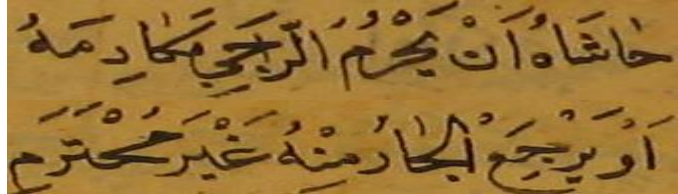 حَاشَاهُ اَنْ يَحْرُمَ الرَّاجِي مَكَارِمَهُ
اَوْ يَرْجِعَ الْجَارُ مِنْهُ غَيْرَ مُحْتَرَمِ